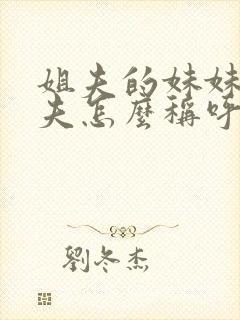 姐夫的妹妹
夫怎麼稱呼
劉冬杰